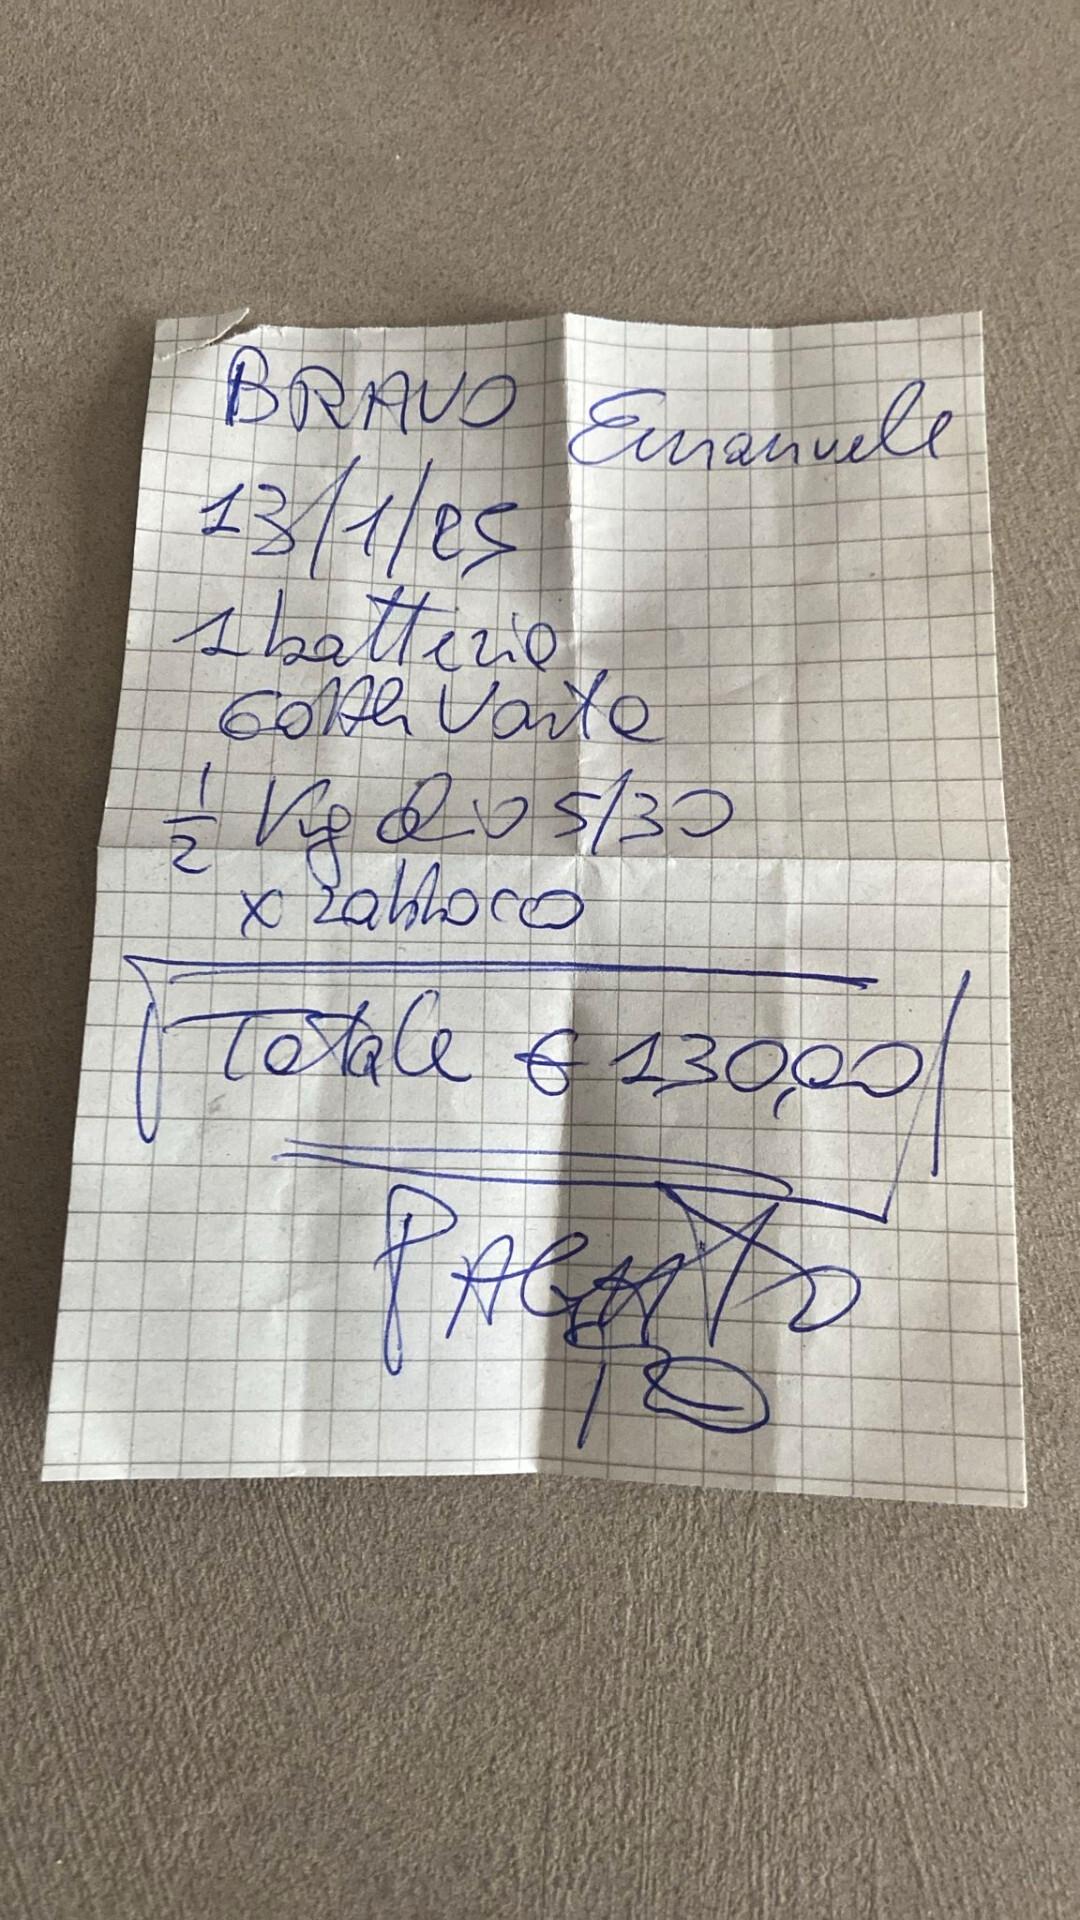 BRAVO Emanuele
13/1/25
1 batteria
60Ah Varta
1/2 Kg Olio 5/30
x rabbocco
Totale € 130,00
PAGATO